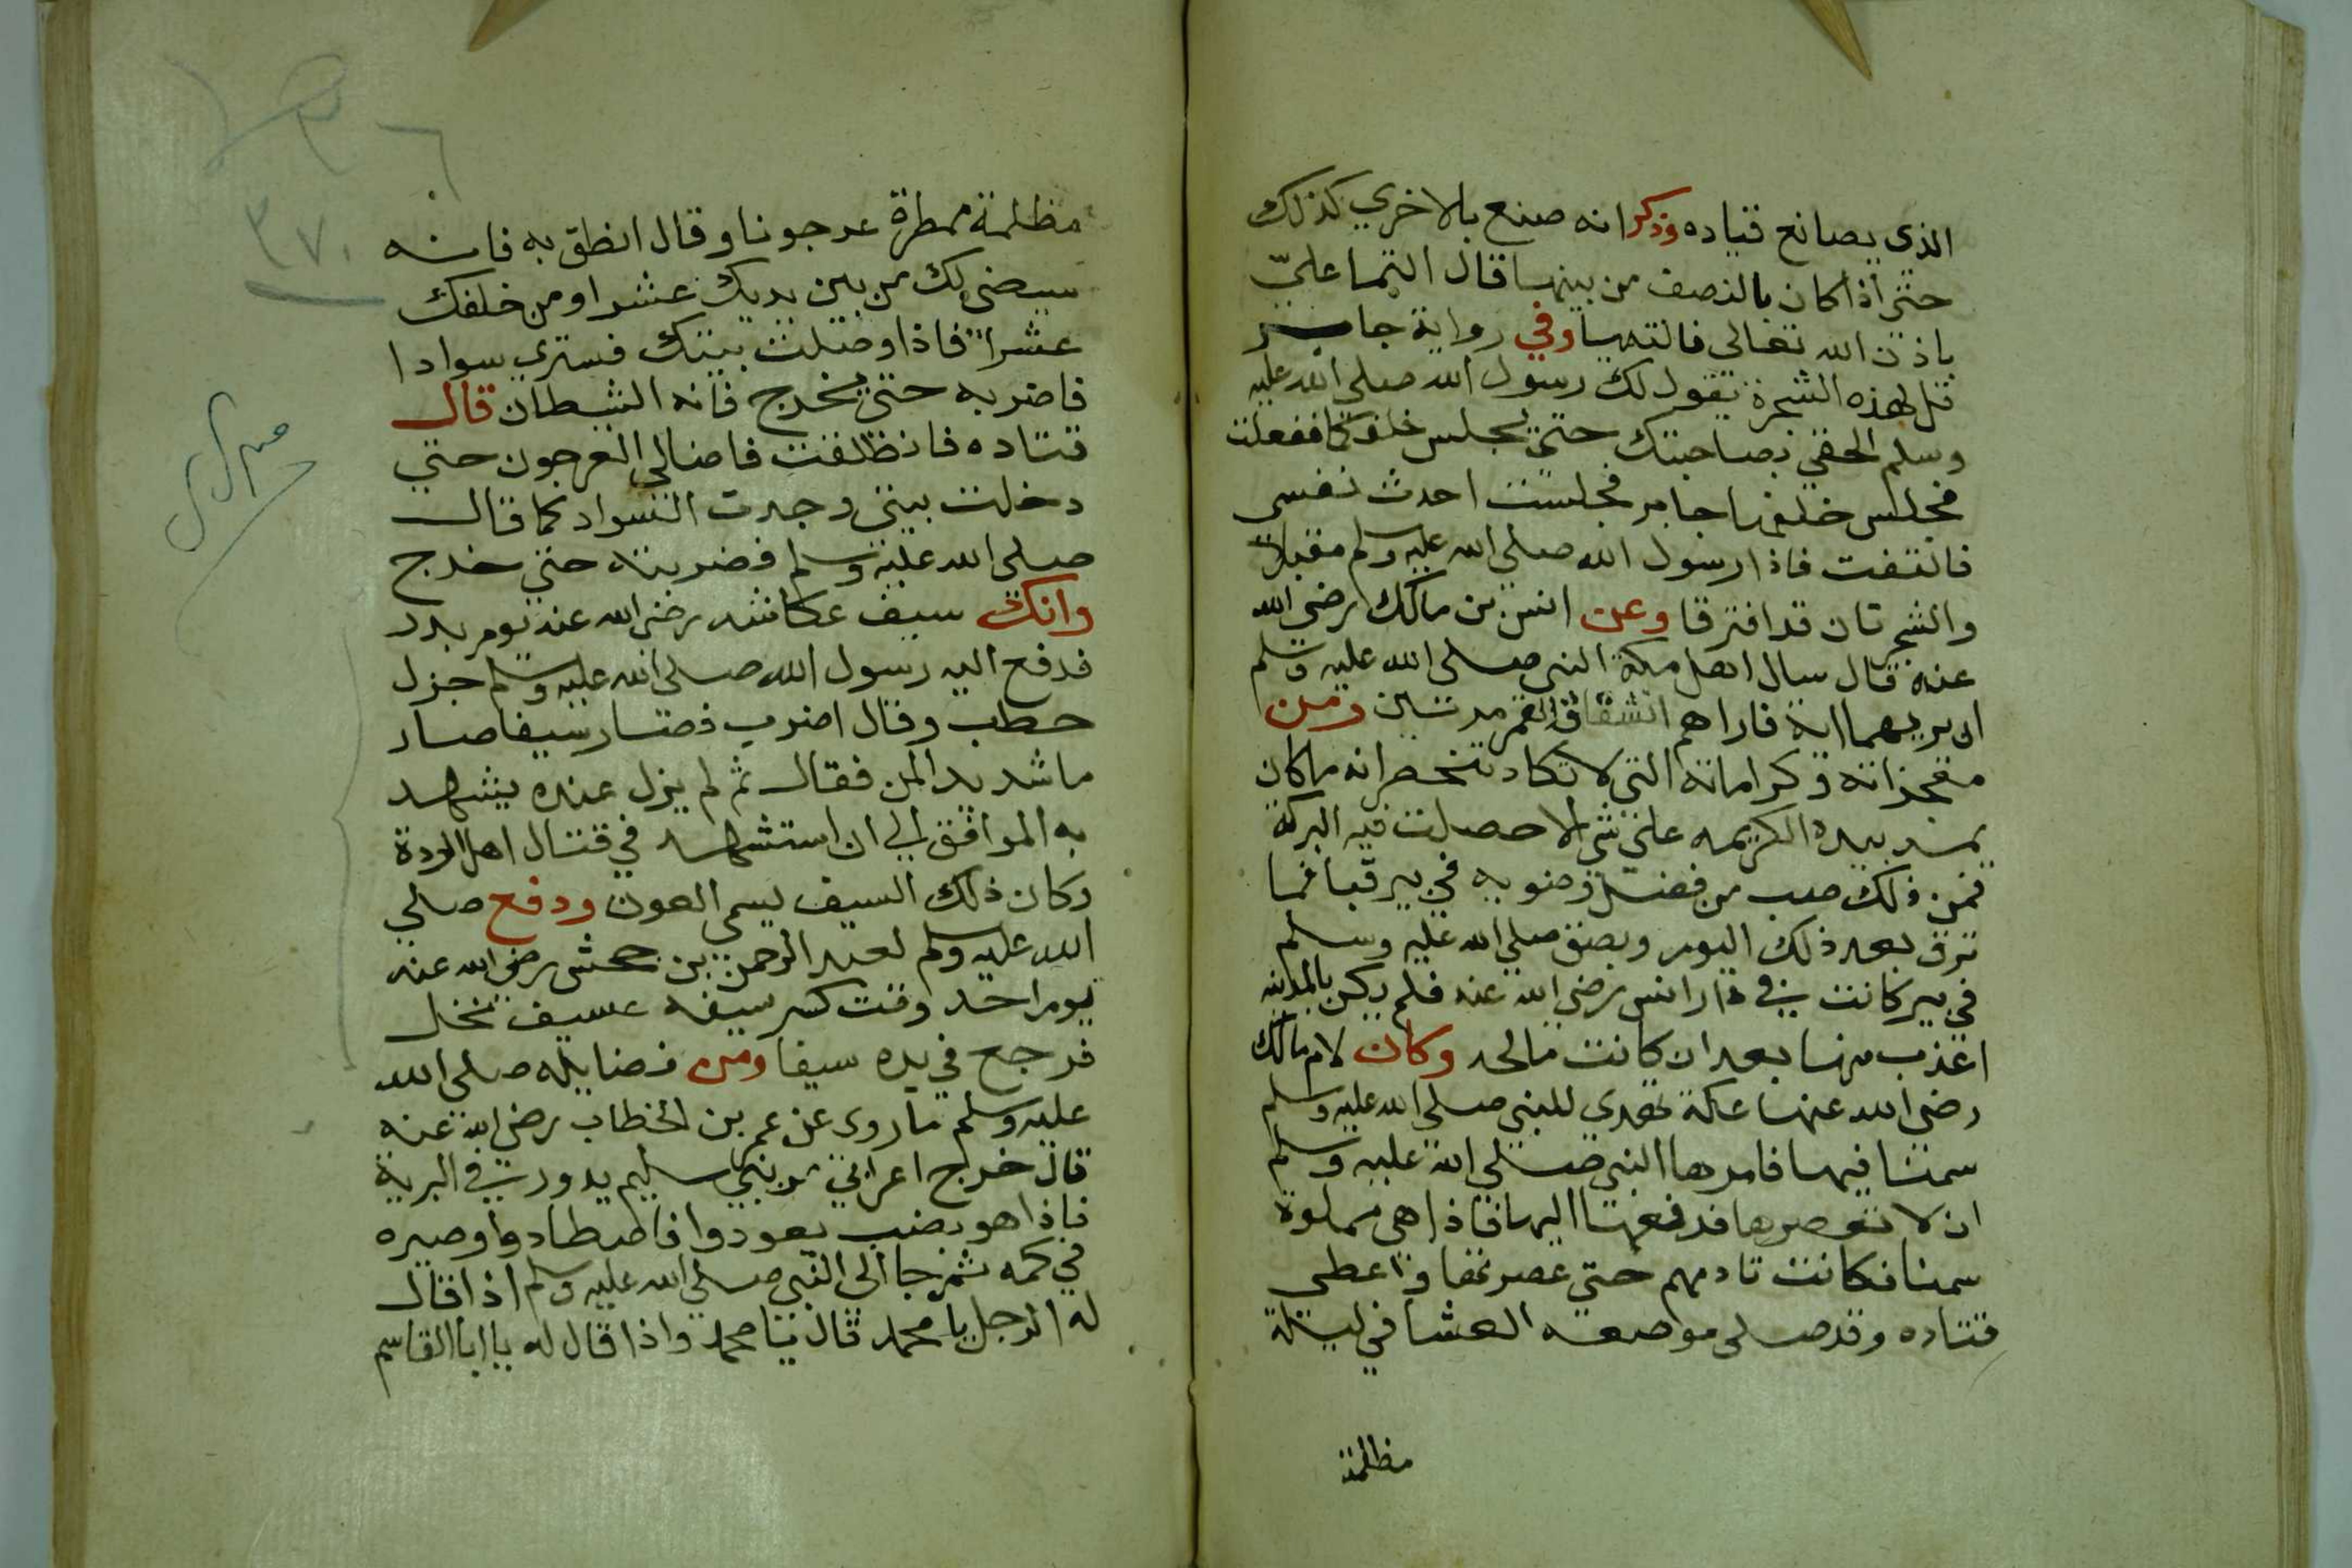 الذي يصانع قياده وذكر انه صنع بالاخري كذلك
حتى اذا كان بالنصف من بينهما قال التيما عليّ
باذن الله تعالى فالتهما وفي رواية جابر
قل لهذه الشجرة يقول لك رسول الله صلى الله عليه
وسلم الحقي بصاحبتك حتى يجلس خلفكما ففعلت
فجلس خلفهما جابر فجلست احدث نفسي
فالتفت فاذا رسول الله صلى الله عليه وسلم مقبلا
والشجرتان قد افترقا وعن انس بن مالك رضى الله
عنه قال سال اهل مكة النبي صلى الله عليه وسلم
ان يريهما اية فاراهم انشقاق القمر مرتين ومن
معجزاته وكراماته التي لا تكاد تنحصر انه ماكان
يمسه بيده الكريمه على شي الا حصلت فيه البركة
فمن ذلك صب من فضل وضوبه في بير قبا فما
نزف بعد ذلك اليوم وبصق صلى الله عليه وسلم
في بير كانت في دار انس رضى الله عنه فلم يكن بالمدينه
اعذب منها بعد ان كانت مالحه وكان لام مالك
رضى الله عنها عكة تهدى للنبي صلى الله عليه وسلم
سمنا فيها فامرها النبي صلى الله عليه وسلم
ان لا تعصرها فدفعها اليها فاذا هي مملوة
سمنا فكانت تادمهم حتى عصرتها واعطى
قتاده وقد صلى مواصعه العشا في ليلة
مظلمة
مظلمة ممطرة عرجونا وقال انطق به فانه
سيضى لك من بين يديك عشرا ومن خلفك
عشرا فاذا وصلت بيتك فسترى سوادا
فاضربه حتى يخرج فانه الشيطان قال
قتاده فانطلقت فاضا لي العرجون حتي
دخلت بيتي وجدت السواد كما قال
صلى الله عليه وسلم فضربته حتى خرج
وانك سيف عكاشه رضى الله عنه يوم بدر
فدفع اليه رسول الله صلى الله عليه وسلم جزل
حطب وقال اضرب فصار سيفا صار
ما شديد المن فقال ثم لم يزل عنده يشهد
به المواقف الي ان استشهد في قتال اهل الردة
وكان ذلك السيف يسمى العون ودفع صلي
الله عليه وسلم لعبد الرحمن بن جحش رضى الله عنه
يوم احد وقت كسر سيفه عسيف نخل
فرجع في يده سيفا ومن فضايله صلى الله
عليه وسلم ما روى عن عمر بن الخطاب رضى الله عنه
قال خرج اعرابي من بني سليم يدور في البرية
فاذا هو بضب يعودوا فاصطادوا وصيره
في كمه ثم جا الى النبي صلى الله عليه وسلم اذا قال
له الرجل يا محمد قال يا محمد واذا قال له يا ابا القاسم
٣٧٠